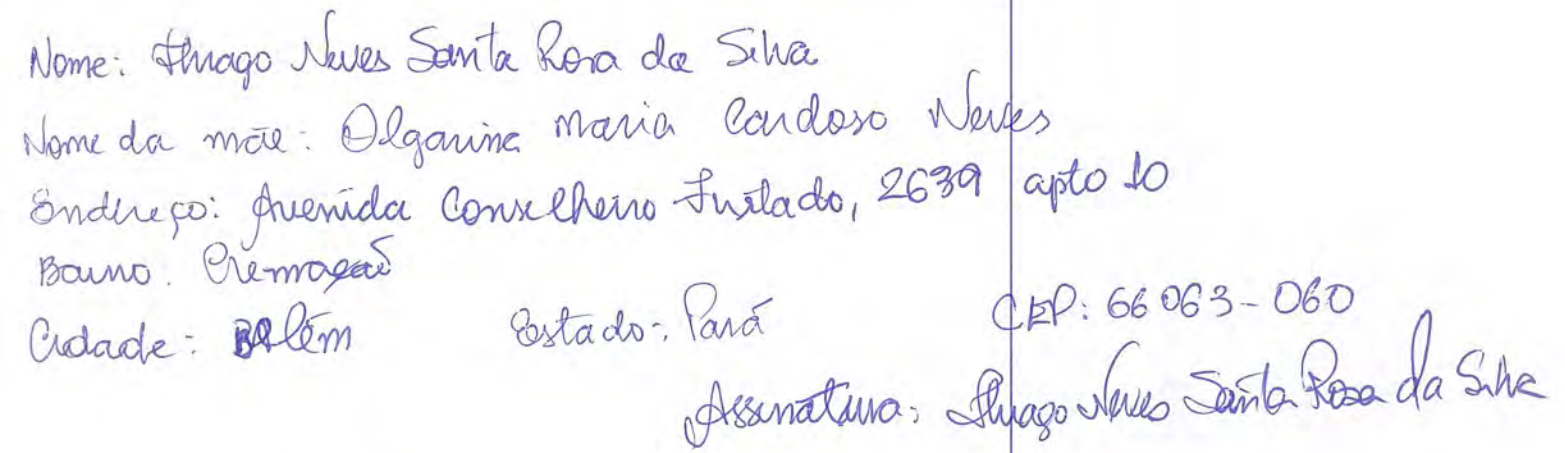 Nome: Thiago Neves Santa Rosa da Silva
Nome da mãe: Olgarina Maria Cardoso Neves
Endereço: Avenida Conselheiro Furtado, 2639 apto 10
Bairro: Cremação
Cidade: Belém Estado: Pará CEP: 66063-060
Assinatura: Thiago Neves Santa Rosa da Silva